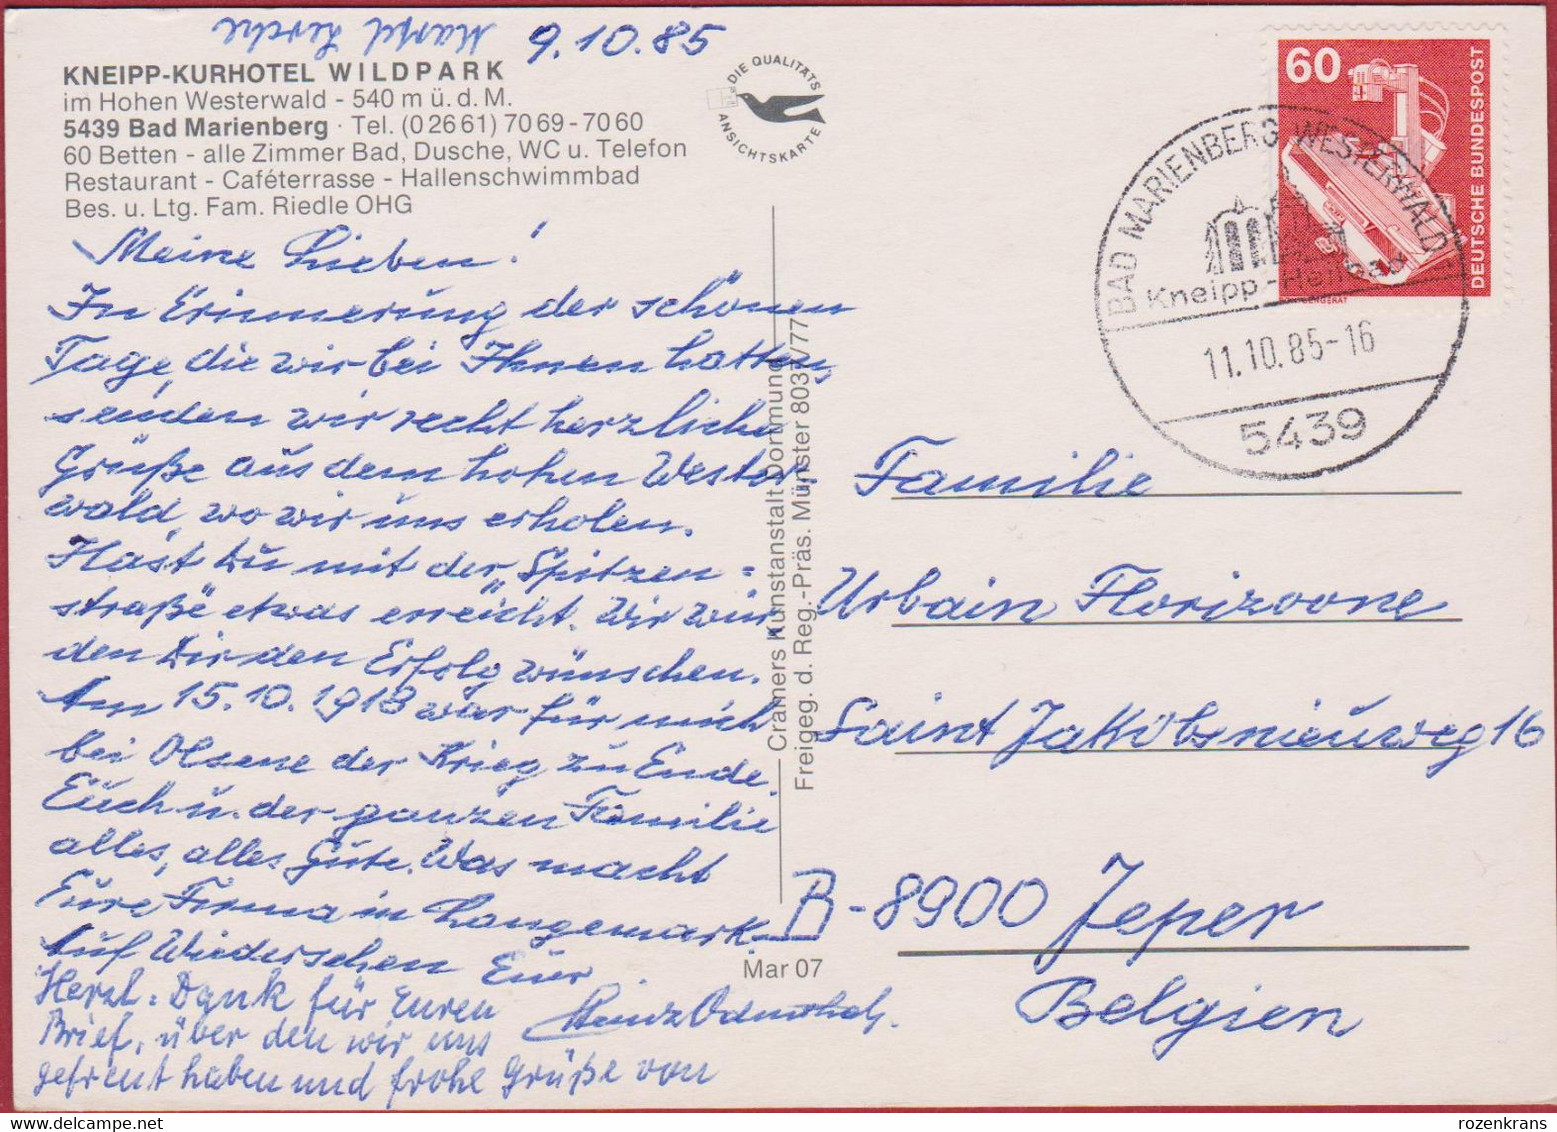 9.10.85
KNEIPP-KURHOTEL WILDPARK
im Hohen Westerwald - 540 m ü. d. M.
5439 Bad Marienberg · Tel. (0 26 61) 70 69 - 70 60
60 Betten - alle Zimmer Bad, Dusche, WC u. Telefon
Restaurant - Caféterrasse - Hallenschwimmbad
Bes. u. Ltg. Fam. Riedle OHG
DIE QUALITÄTS
ANSICHTSKARTE
Meine Lieben!
In Erinnerung der schönen
Tage, die wir bei Ihnen hatten,
senden wir recht herzliche
Grüße aus dem hohen Wester-
wald, wo wir uns erholen.
Hast Du mit der „Spitzen=
straße" etwas erreicht. Wir wür,
den Dir den Erfolg wünschen.
Am 15.10.1918 war für mich
bei Olsene der Krieg zu Ende.
Euch u. der ganzen Familie
alles, alles Gute. Was macht
Eure Firma in Langemark.
Auf Wiedersehen Euer
Heinz
Herzl. Dank für Euren
Brief, über den wir uns
gefreut haben und frohe Grüße von
Cramers Kunstanstalt Dortmund
Freigeg. d. Reg.-Präs. Münster 8037/77
Mar 07
60
DEUTSCHE BUNDESPOST
BAD MARIENBERG WESTERWALD
Kneipp-Heilbad
11.10.85-16
5439
Familie
Urbain Florizoone
Saint Jakobsnieuweg 16
B-8900 Jeper
Belgien
rozenkrans